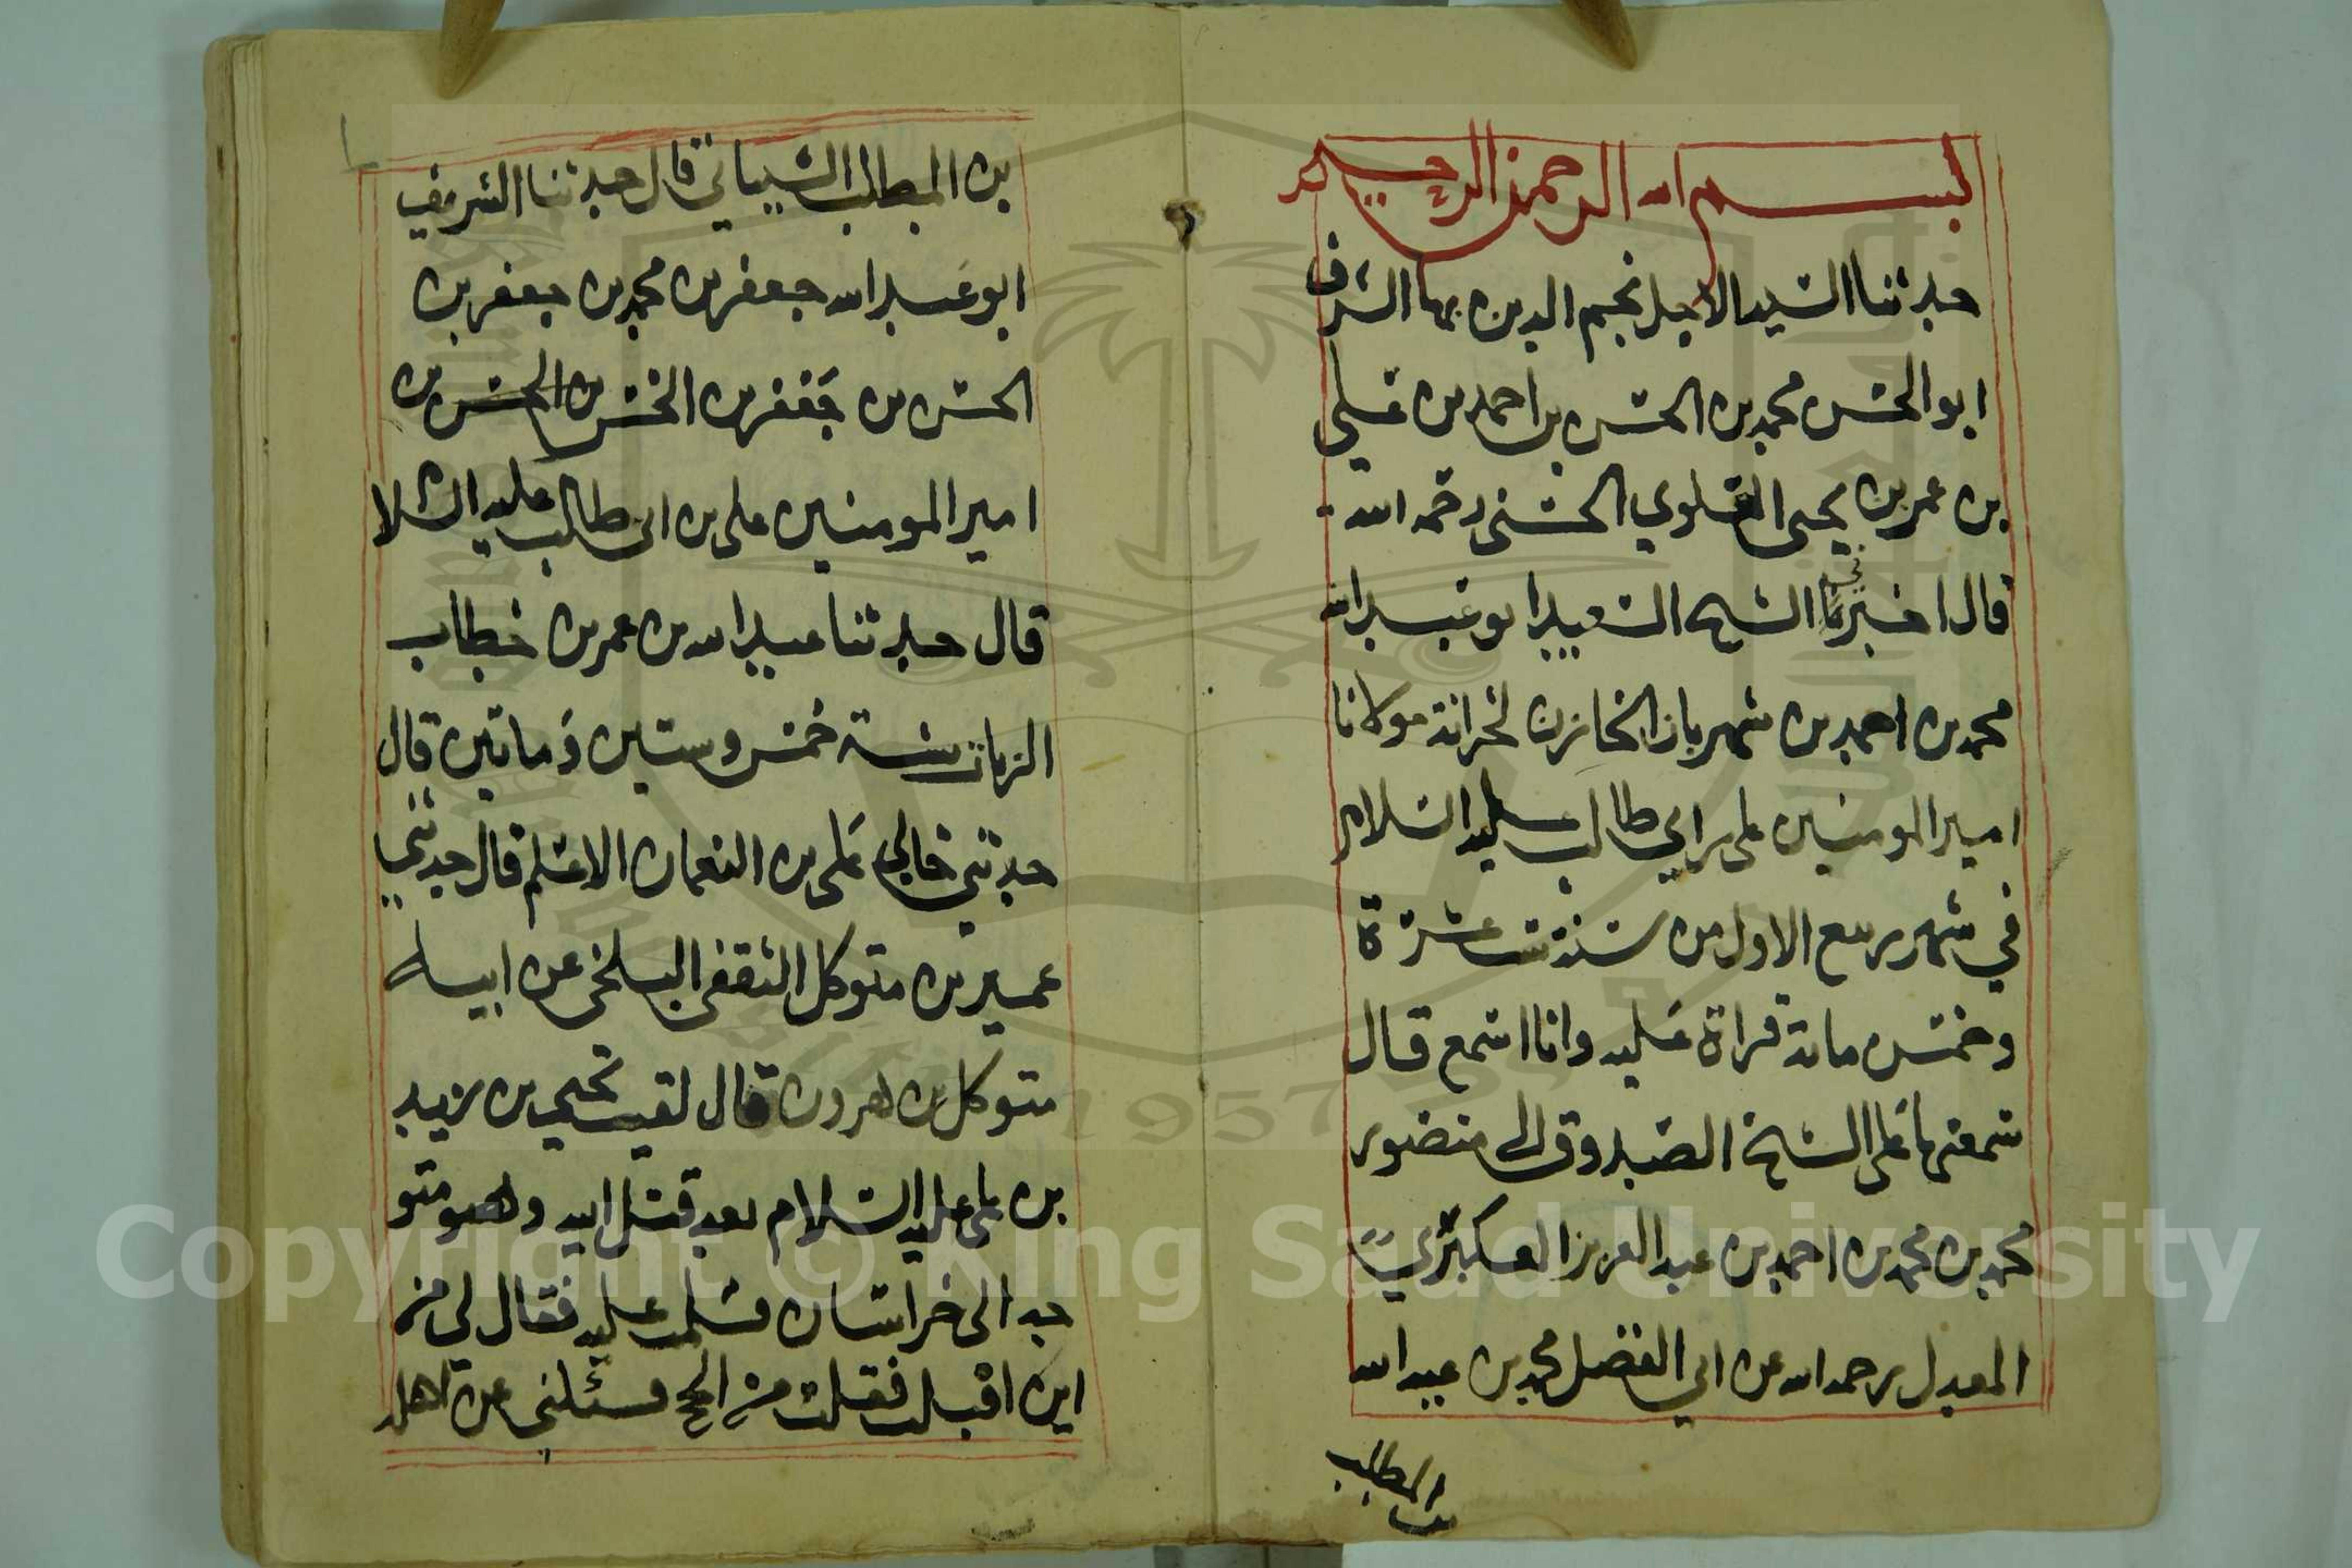 بسم الله الرحمن الرحيم
حدثنا السيد الاجل نجم الدين بها الشرف
ابو الحسن محمد بن الحسن بن احمد بن علي
بن عمر بن يحيى العلوي الحسني رحمه الله
قال اخبرنا الشيخ السعيد ابو عبد الله
محمد بن احمد بن شهريار الخازن لخزانة مولانا
امير المومنين علي بن ابي طالب عليه السلام
في شهر ربيع الاول من سنة ست عشرة
وخمس مائة قراة عليه وانا اسمع قال
سمعتها على الشيخ الصدوق ابي منصور
محمد بن محمد بن احمد بن عبد العزيز العكبري
المعدل رحمه الله عن ابي الفضل محمد بن عبد الله
بن المطلب
بن المطلب الشيباني قال حدثنا الشريف
ابو عبد الله جعفر بن محمد بن جعفر بن
الحسن بن جعفر بن الحسن بن الحسن بن
امير المومنين علي بن ابي طالب عليه السلا
قال حدثنا عبد الله بن عمر بن خطاب
الزيات سنة خمس وستين وماتين قال
حدثني خالي علي بن النعمان الاعلم قال حدثني
عمير بن متوكل الثقفي البلخي عن ابيه
متوكل بن هرون قال لقيت يحيى بن زيد
بن علي عليه السلام بعد قتل ابيه وهو متو
جه الى خراسان فسلمت عليه فقال لي من
اين اقبلت فقلت من الحج فسئلني عن اهله
Copyright © King Saud University
1957